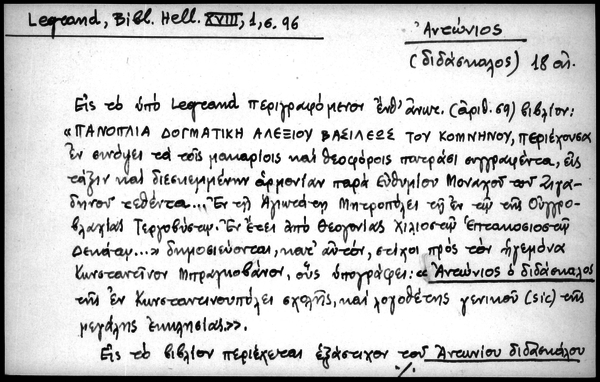 Legrand, Bibl. Hell. XVIII, 1, σ. 96
Ἀντώνιος
(διδάσκαλος) 18 αἰ.
Εἰς τὸ ὑπὸ Legrand περιγραφόμενον ἔνθ' ἀνωτ. (ἀριθ. 69) βιβλίον:
«ΠΑΝΟΠΛΙΑ ΔΟΓΜΑΤΙΚΗ ΑΛΕΞΙΟΥ ΒΑΣΙΛΕΩΣ ΤΟΥ ΚΟΜΝΗΝΟΥ, περιέχουσα
ἐν συνόψει τὰ τοῖς μακαρίοις καὶ θεοφόροις πατράσι συγγραφέντα, εἰς
τάξιν καὶ διεσκεμμένην ἁρμονίαν παρὰ Εὐθυμίου Μοναχοῦ τοῦ Ζιγα-
δηνοῦ τεθέντα... Ἐν τῇ Ἁγιωτάτῃ Μητροπόλει τῇ ἐν τῇ τῆς Οὑγγρο-
βλαχίας Τεργοβύστῳ. Ἐν ἔτει ἀπὸ Θεογονίας Χιλιοστῷ Ἑπτακοσιοστῷ
Δεκάτῳ...» δημοσιεύονται, κατ' αὐτόν, στίχοι πρὸς τὸν ἡγεμόνα
Κωνσταντῖνον Μπραγκοβάνον, οὓς ὑπογράφει: «Ἀντώνιος ὁ διδάσκαλος
τῆς ἐν Κωνσταντινουπόλει σχολῆς, καὶ λογοθέτης γενικοῦ (sic) τῆς
μεγάλης ἐκκλησίας».
Εἰς τὸ βιβλίον περιέχεται ἑξάστιχον τοῦ Ἀντωνίου διδασκάλου
./.